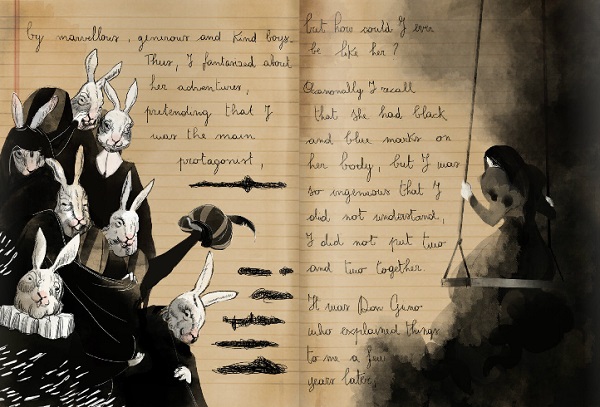 by marvellous, generous and kind boys.
Thus, I fantasized about
her adventures,
pretending that I
was the main
protagonist,
but how could I ever
be like her?
Occasionally I recall
that she had black
and blue marks on
her body, but I was
so ingenuous that I
did not understand,
I did not put two
and two together.
It was Don Gino
who explained things
to me a few
years later,